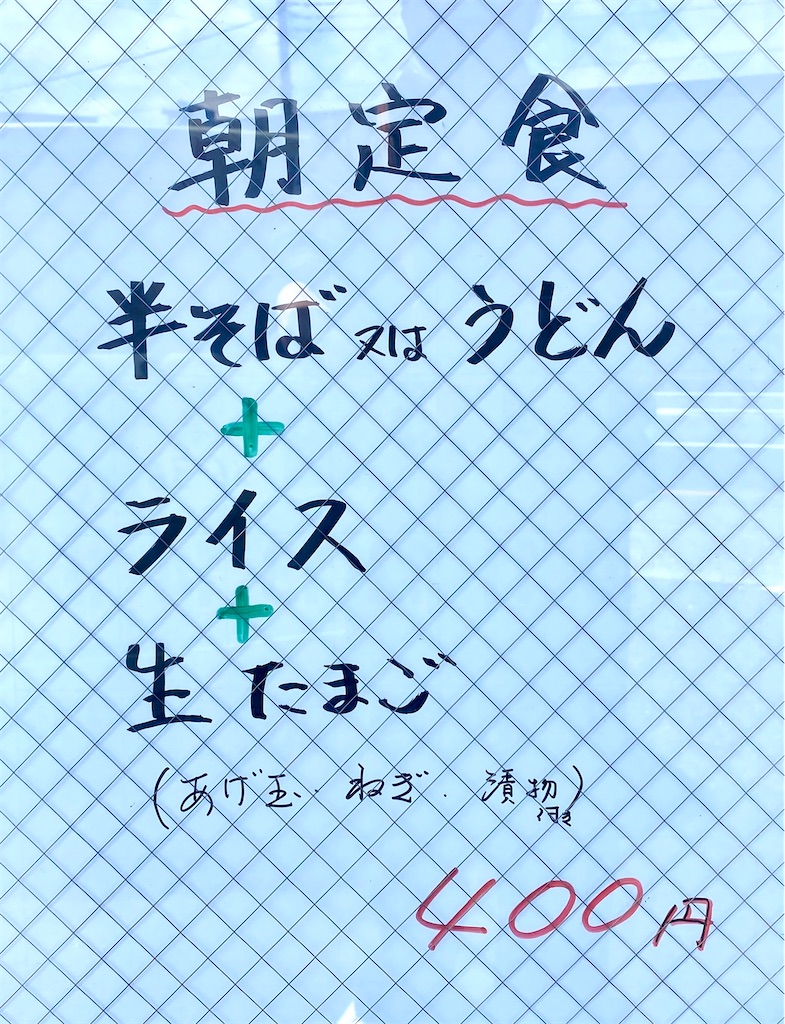 朝定食
半そば又はうどん
+
ライス
+
生たまご
(あげ玉・ねぎ・漬物付き)
400円